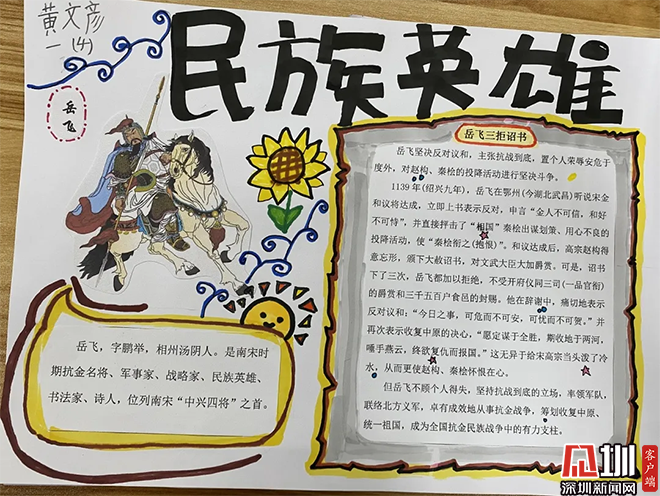 黄文彦
一(4)
民族英雄
岳飞
岳飞三拒诏书
岳飞坚决反对议和，主张抗战到底，置个人荣辱安危于
度外，对赵构、秦桧的投降活动进行坚决斗争。
1139年(绍兴九年)，岳飞在鄂州(今湖北武昌)听说宋金
和议将达成，立即上书表示反对，申言“金人不可信，和好
不可恃”，并直接抨击了“相国”秦桧出谋划策、用心不良的
投降活动，使“秦桧衔之(抱恨)”。和议达成后，高宗赵构得
意忘形，颁下大赦诏书，对文武大臣大加爵赏。可是，诏书
下了三次，岳飞都加以拒绝，不受开府仪同三司(一品官衔)
的爵赏和三千五百户食邑的封赐。他在辞谢中，痛切地表示
反对议和：“今日之事，可危而不可安，可忧而不可贺。”并
再次表示收复中原的决心，“愿定谋于全胜，期收地于两河，
唾手燕云，终欲复仇而报国。”这无异于给宋高宗当头泼了冷
水，从而更使赵构、秦桧怀恨在心。
但岳飞不顾个人得失，坚持抗战到底的立场，率领军队，
联络北方义军，卓有成效地从事抗金战争，筹划收复中原、
统一祖国，成为全国抗金民族战争中的有力支柱。
岳飞，字鹏举，相州汤阴人。是南宋时
期抗金名将、军事家、战略家、民族英雄、
书法家、诗人，位列南宋“中兴四将”之首。
深圳新闻网
客户端